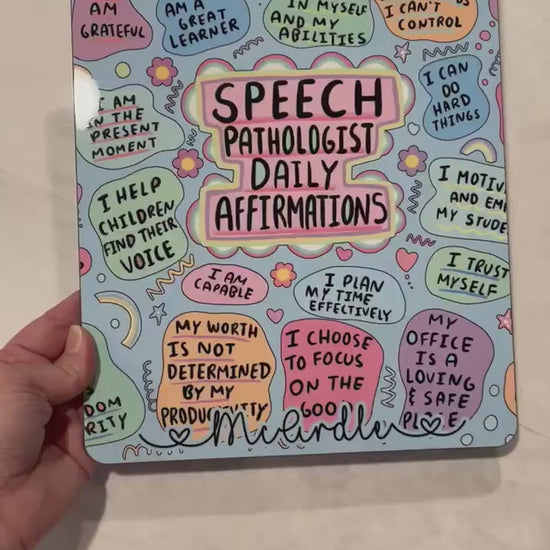 AM
GRATEFUL
AM A
GREAT
LEARNER
IN MYSELF
AND MY
ABILITIES
I CAN'T
CONTROL
I AM
IN THE
PRESENT
MOMENT
SPEECH
PATHOLOGIST
DAILY
AFFIRMATIONS
I CAN
DO
HARD
THINGS
I HELP
CHILDREN
FIND THEIR
VOICE
I
AND
MY
I AM
CAPABLE
I PLAN
MY TIME
EFFECTIVELY
I TRUST
MYSELF
MY WORTH
IS NOT
DETERMINED
BY MY
PRODUCTIVITY
I CHOOSE
TO FOCUS
ON THE
GOO
MY
OFFICE
IS A
LOVING
& SAFE
PLACE
DOM
RITY
McArdle